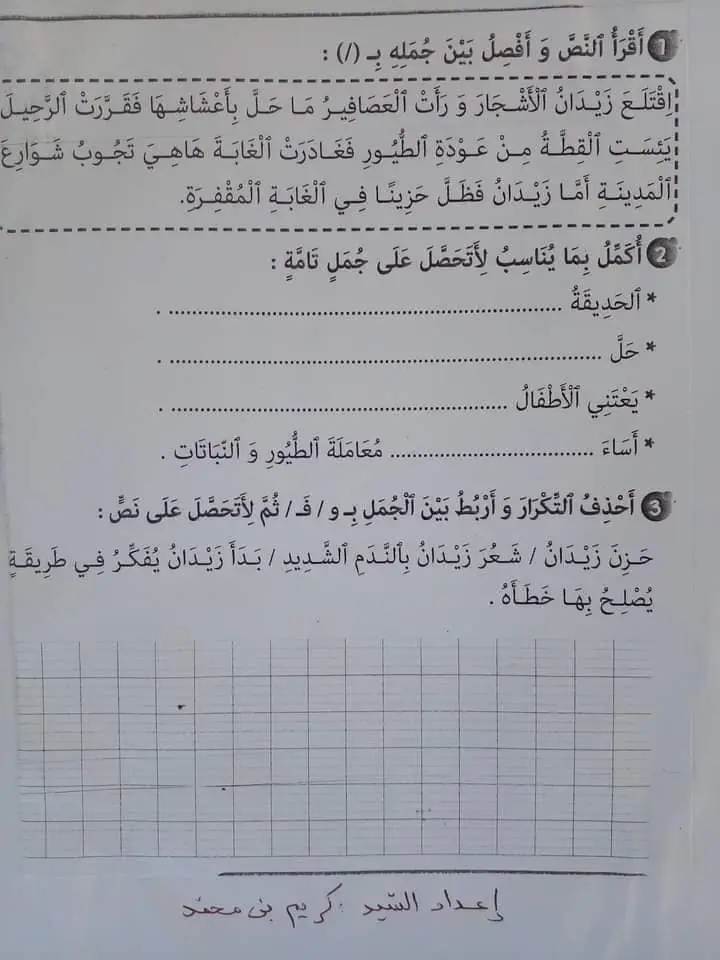 1 أَقْرَأُ ٱلنَّصَّ وَ أَفْصِلُ بَيْنَ جُمَلِهِ بِـ (/) :
اِقْتَلَعَ زَيْدَانُ ٱلْأَشْجَارَ وَ رَأَتْ ٱلْعَصَافِيرُ مَا حَلَّ بِأَعْشَاشِهَا فَقَرَّرَتْ ٱلرَّحِيلَ
يَئِسَتِ ٱلْقِطَّةُ مِنْ عَوْدَةِ ٱلطُّيُورِ فَغَادَرَتْ ٱلْغَابَةَ هَاهِيَ تَجُوبُ شَوَارِعَ
ٱلْمَدِينَةِ أَمَّا زَيْدَانُ فَظَلَّ حَزِينًا فِي ٱلْغَابَةِ ٱلْمُقْفِرَةِ.
2 أُكَمِّلُ بِمَا يُنَاسِبُ لِأَتَحَصَّلَ عَلَى جُمَلٍ تَامَّةٍ :
* ٱلحَدِيقَةُ ............................................................ .
* حَلَّ ................................................................. .
* يَعْتَنِي ٱلْأَطْفَالُ .................................................... .
* أَسَاءَ ............................... مُعَامَلَةَ ٱلطُّيُورِ وَ ٱلنّبَاتَاتِ .
3 أَحْذِفُ ٱلتِّكْرَارَ وَ أَرْبُطُ بَيْنَ ٱلْجُمَلِ بِـ و / فَـ / ثُمَّ لِأَتَحَصَّلَ عَلَى نَصٍّ :
حَزِنَ زَيْدَانُ / شَعُرَ زَيْدَانُ بِٱلنَّدَمِ ٱلشَّدِيدِ / بَدَأَ زَيْدَانُ يُفَكِّرُ فِي طَرِيقَةٍ
يُصْلِحُ بِهَا خَطَأَهُ .
إعداد السّيد : كريم بن محمد